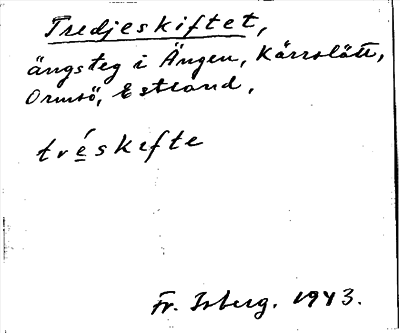 Tredjeskiftet,
ängsteg i Ängen, Kärrslätt,
Ormsö, Estland,
tré̱skefte
Fr. Isberg. 1943.